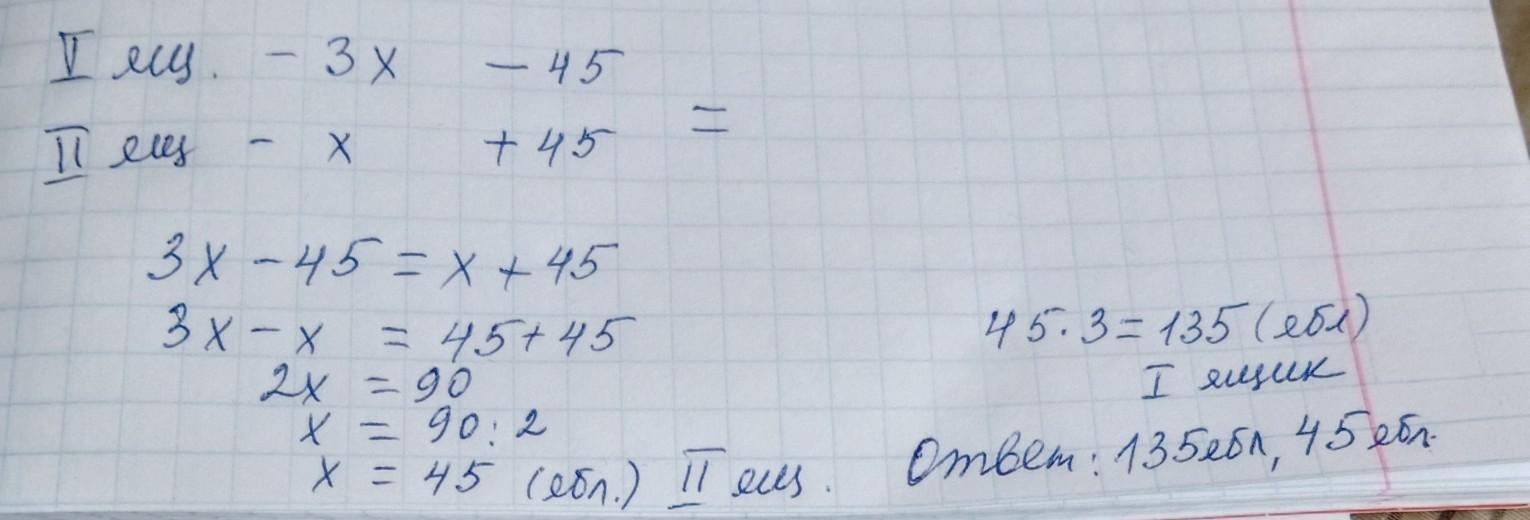 I ящ. - 3х - 45
=
II ящ - х + 45
3х - 45 = х + 45
3х - х = 45 + 45
2х = 90
х = 90 : 2
х = 45 (ябл.) II ящ.
45 · 3 = 135 (ябл)
I ящик
Ответ: 135 ябл, 45 ябл.